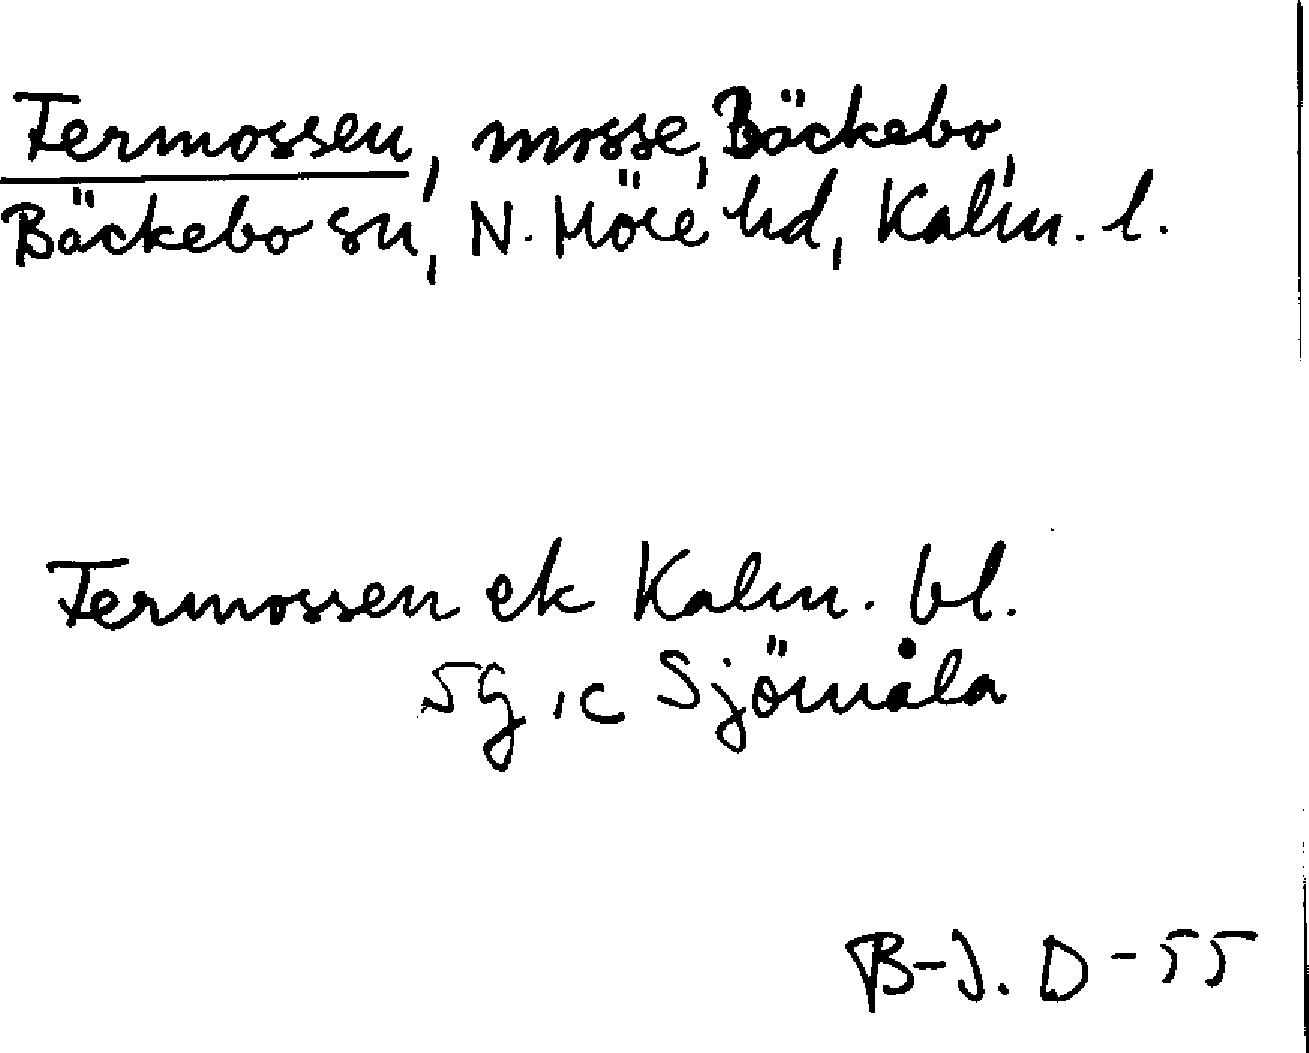 Termossen, mosse, Bäckebo,
Bäckebo sn, N. Möre hd, Kalm. l.
Termossen ek Kalm. bl.
5g, c Sjömåla
B-J. D-55